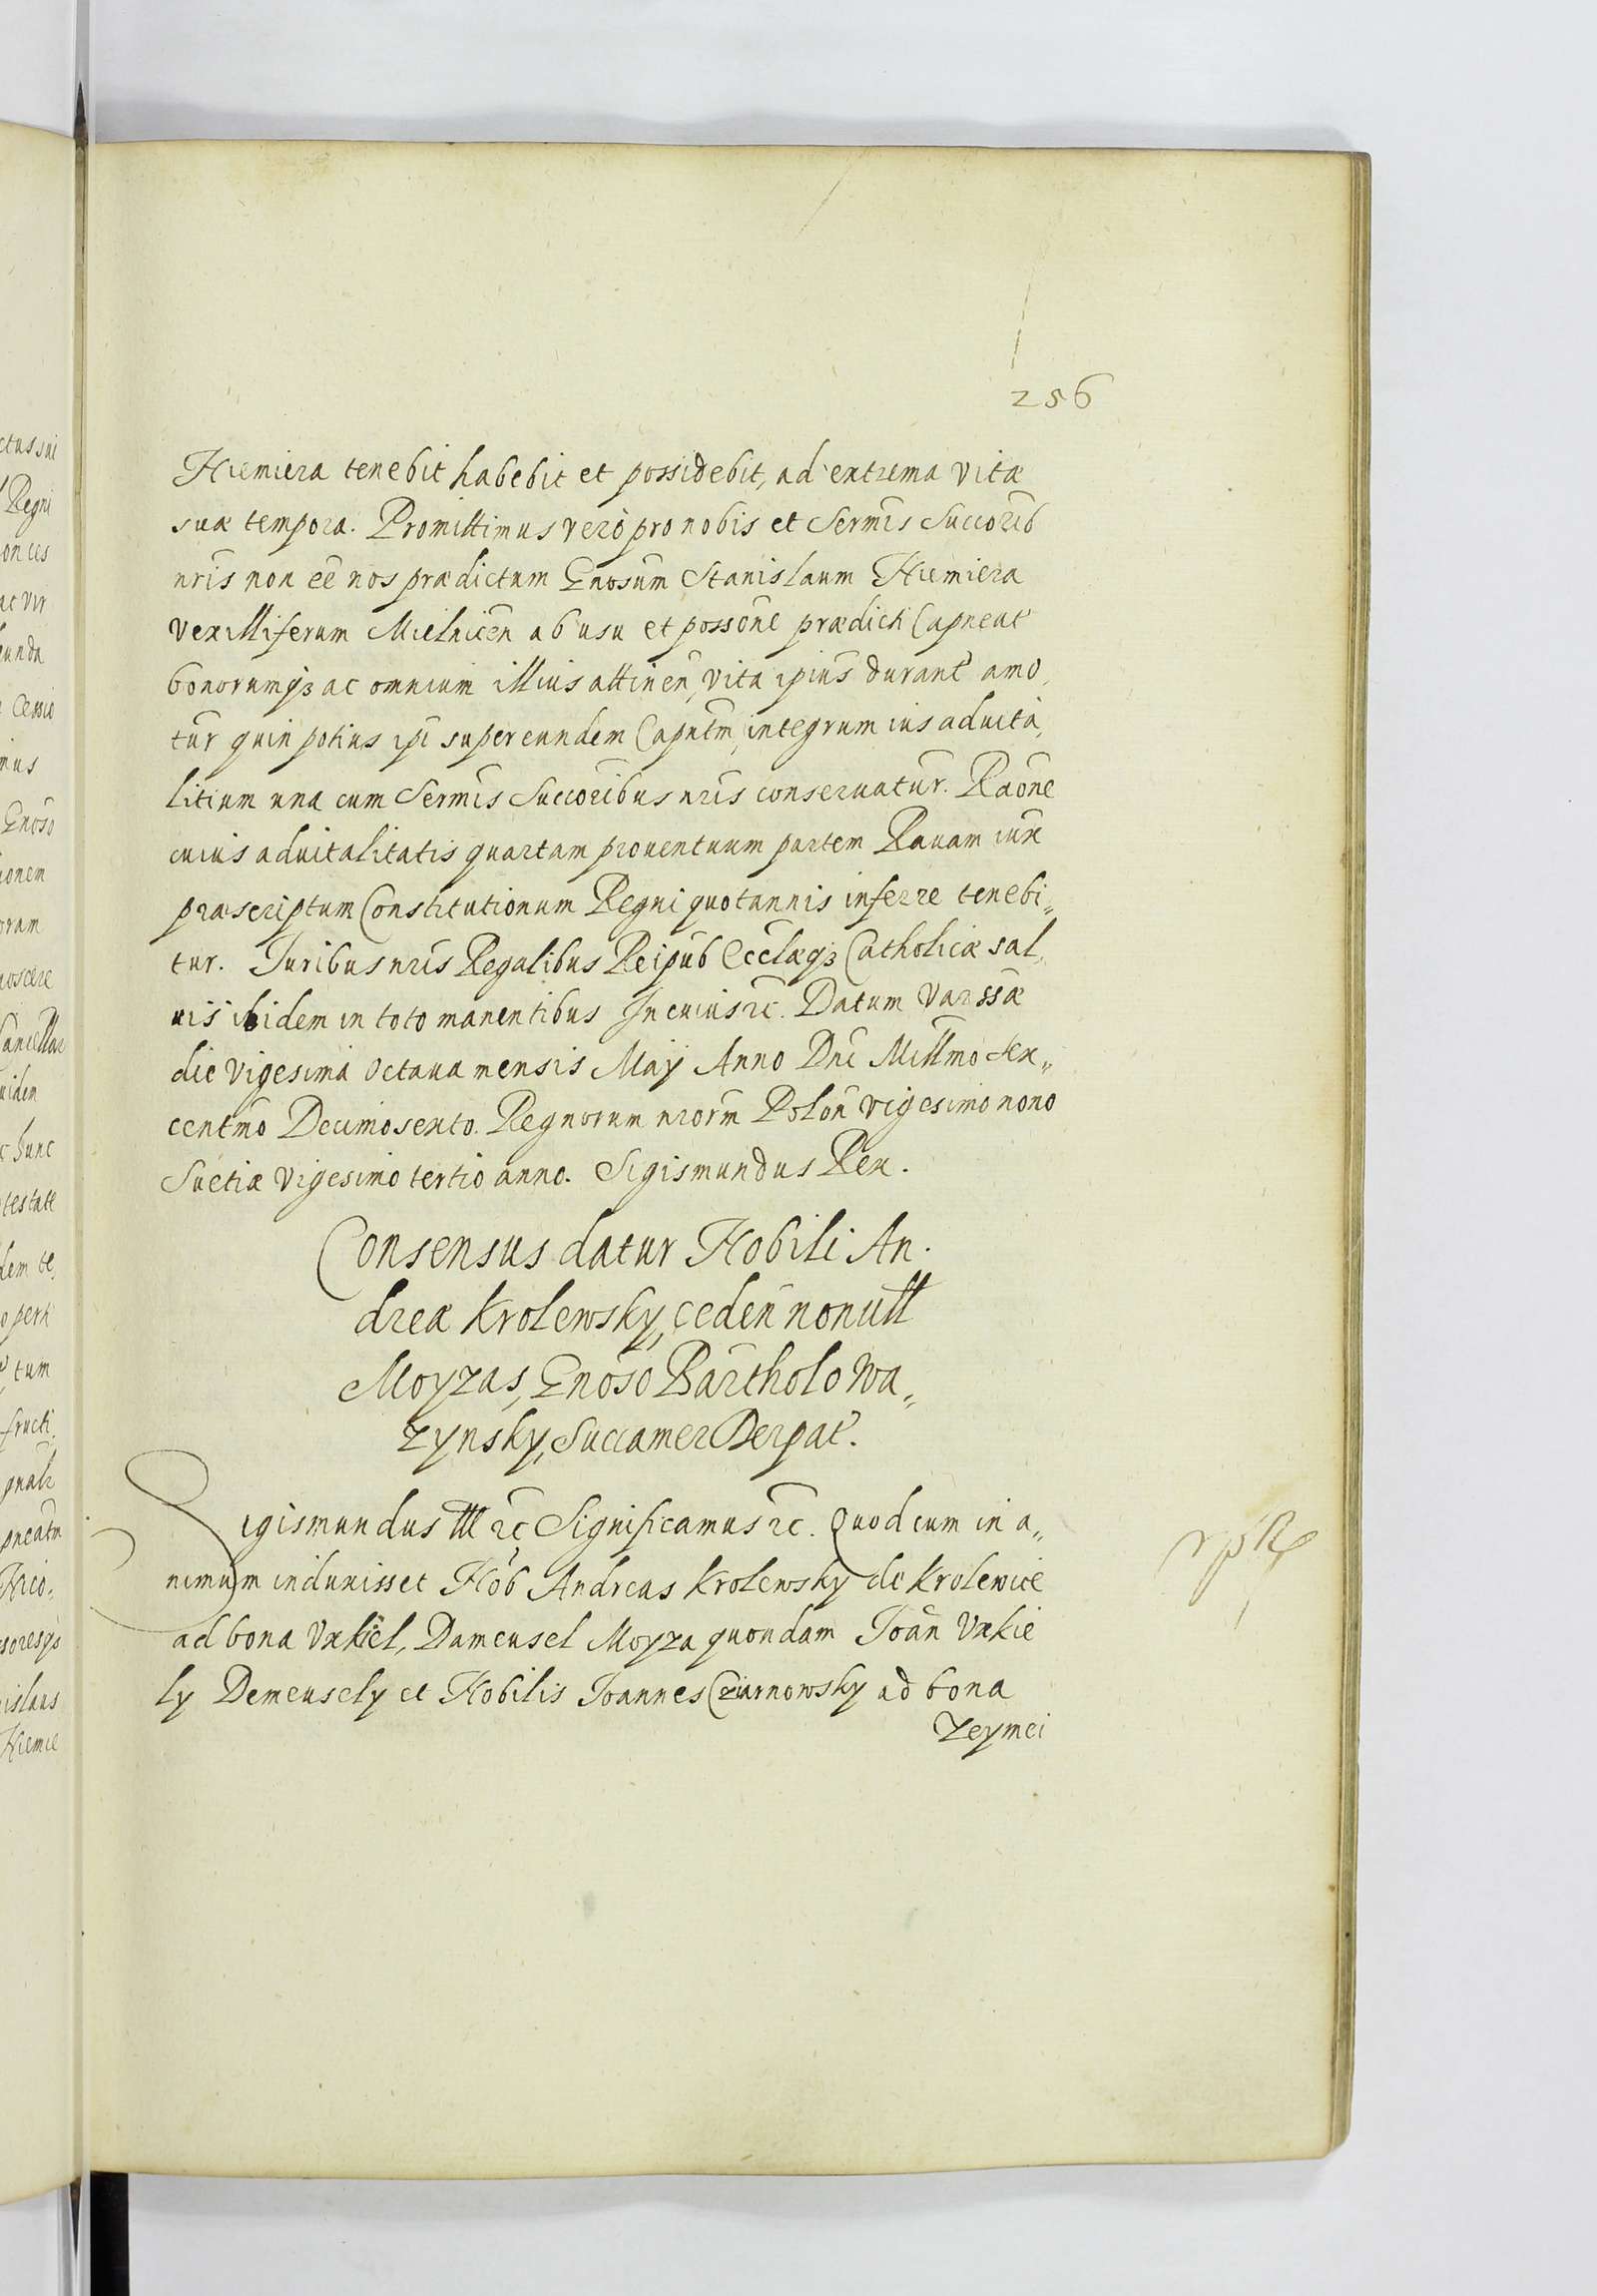 256
Niemiera tenebit habebit et possidebit, ad extrema vitæ
suæ tempora. Promittimus verò pro nobis et Sermis Succorib
nris non eē nos prædictum Gnosum Stanislaum Niemiera
vexilliferum Mielnicen ab usu et possone prædicti Capneat
bonorumqꝫ ac omnium illius attinen, vita ipius durant amo,
tur quin potius ipi super eundem Caputm, integrum ius aduita,
litium una cum Sermis Succoribus nris conseruatur. Raone
cuius aduitalitatis quartam prouentuum partem Rauam iux
præscriptum Constitutionum Regni quotannis inferre tenebi„
tur. Juribus nris Regalibus Reipub Ecclæqꝫ Catholicæ sal,
uis ibidem in toto manentibus In cuius rc. Datum Varssæ
die vigesima octaua mensis Maÿ Anno Dni Millmo Sex„
centmo Decimosexto. Regnorum nrorm Polon vigesimo nono
Suetiæ vigesimo tertio anno. Sigismundus Rex.
Consensus datur Nobili An.
dreæ Krolewsky, ceden nonull
Moyzas, Gnoso Bartholo Wa„
zynsky, Succamer Derpat.
Sigismundus III rc Significamus rc. Quod cum in a„
nimum induxisset Nob Andreas Krolewsky de Krolewice
ad bona Vxkiel, Dameusel Moyza quondam Joan Vxkie
ly Demeusely et Nobilis Joannes Cziarnowsky ad bona
Zeymei
ctus sui
Regni
at vir
Cessio
Gnoso
ionem
noscere
testate
tum
fructi,
islaus
Niemie